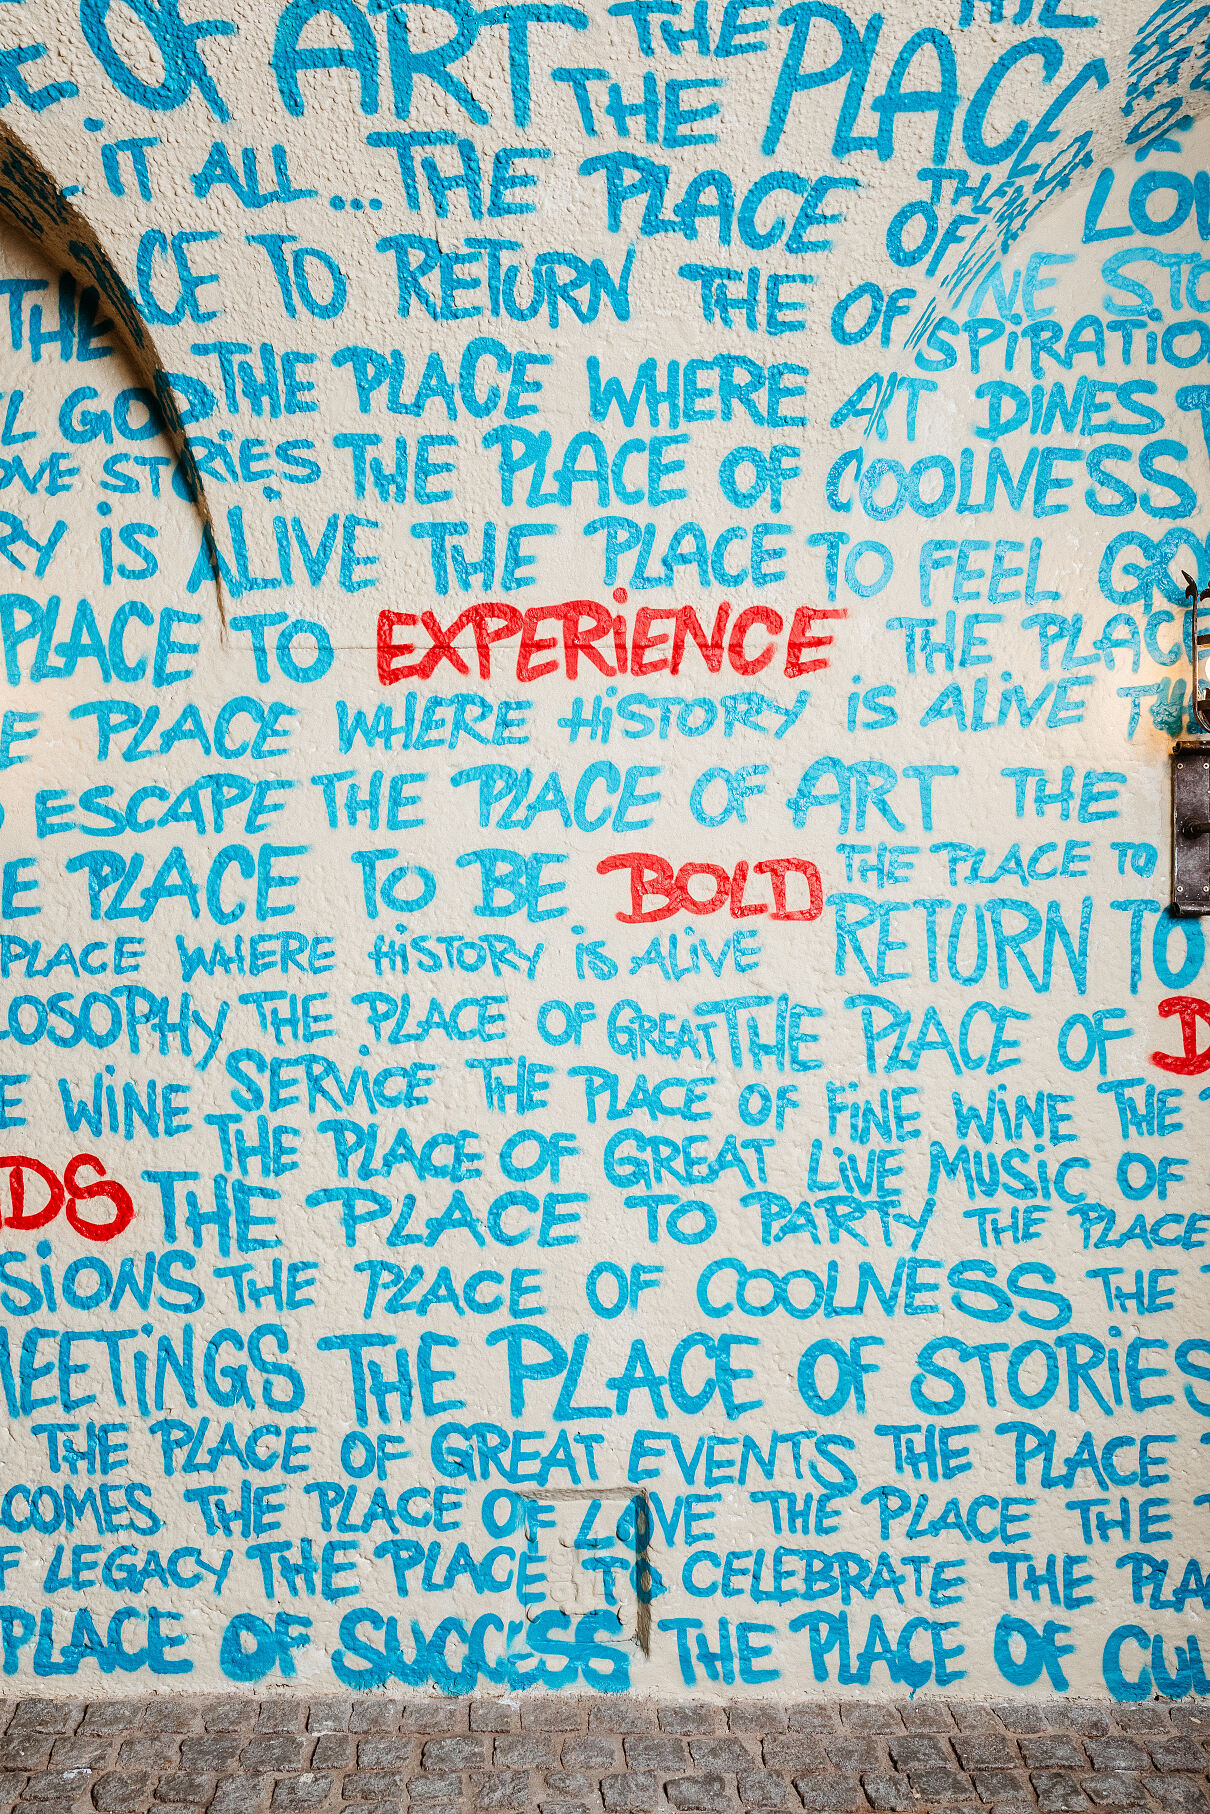 OF ART THE PLACE
THE
IT ALL... THE PLACE OF
TO RETURN THE OF
THE
SPIRATION
GOOD THE PLACE WHERE ART DINES
LOVE STORIES THE PLACE OF COOLNESS
IS ALIVE THE PLACE TO FEEL
PLACE TO EXPERIENCE THE PLACE
PLACE WHERE HISTORY IS ALIVE
ESCAPE THE PLACE OF ART THE
PLACE TO BE BOLD THE PLACE TO
RETURN TO
PLACE WHERE HISTORY IS ALIVE
LOSOPHY THE PLACE OF GREAT THE PLACE OF D
WINE SERVICE THE PLACE OF FINE WINE THE
THE PLACE OF GREAT LIVE MUSIC OF
DS THE PLACE TO PARTY THE PLACE
SIONS THE PLACE OF COOLNESS THE
MEETINGS THE PLACE OF STORIES
THE PLACE OF GREAT EVENTS THE PLACE
COMES THE PLACE OF LOVE THE PLACE THE
LEGACY THE PLACE TO CELEBRATE THE PLA
PLACE OF SUCCESS THE PLACE OF CUL